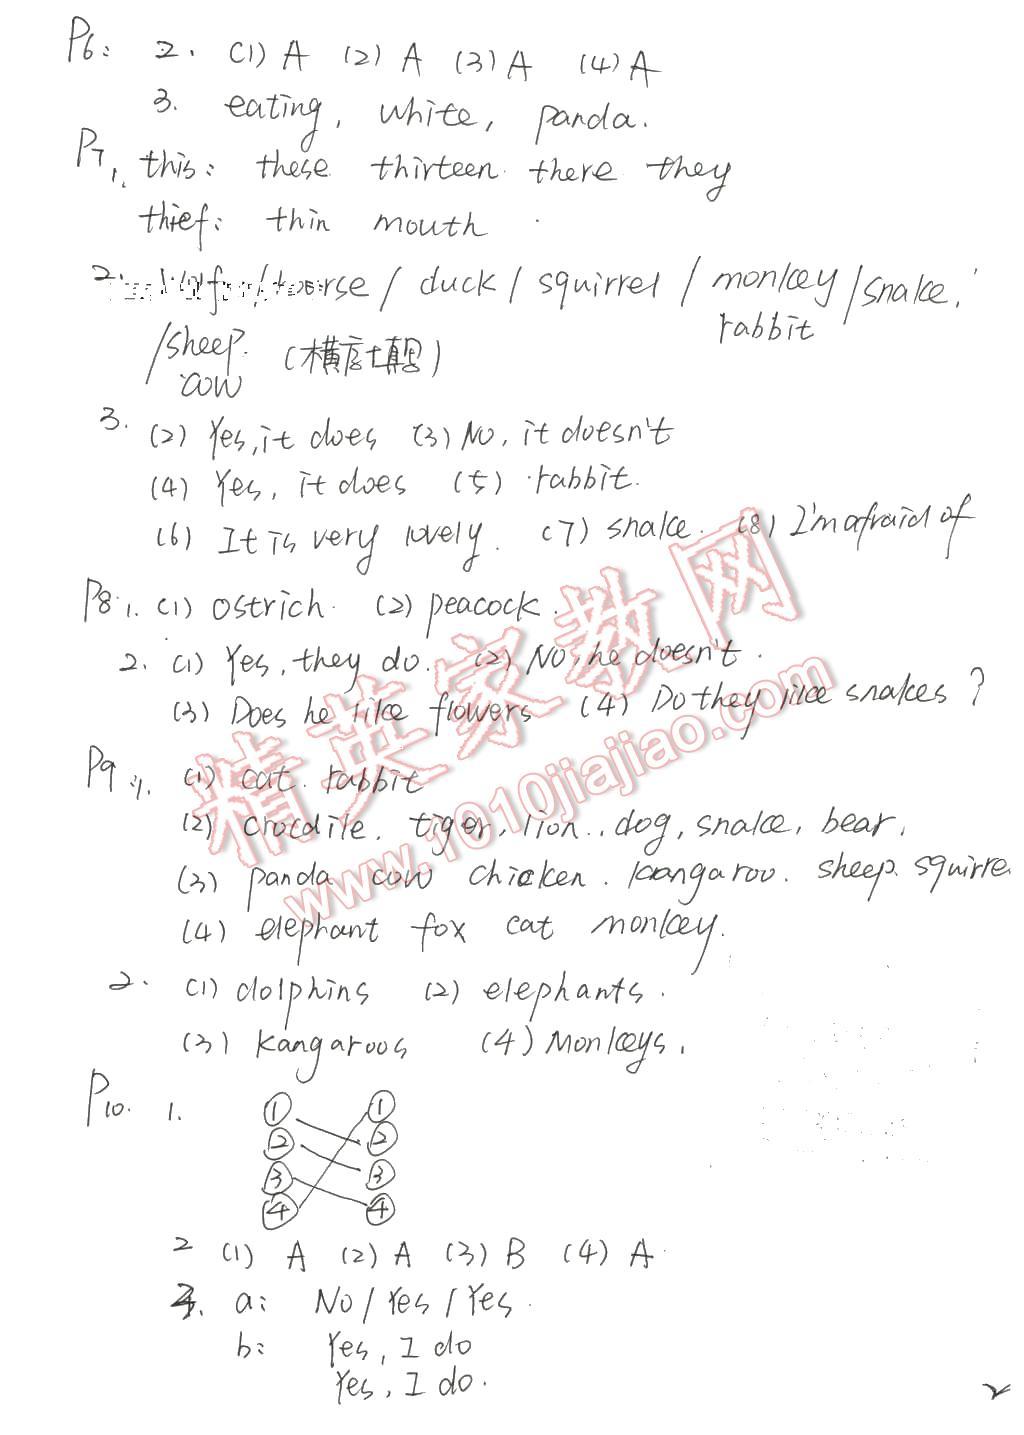 P6: 2. (1) A (2) A (3) A (4) A
3. eating, white, panda.
P7 1. this: these thirteen there they
thief: thin mouth
2. /horse / duck / squirrel / monkey / snake.
rabbit
/sheep.
cow
3. (2) Yes, it does (3) No, it doesn't
(4) Yes, it does (5) rabbit.
(6) It is very lovely. (7) snake. (8) I'm afraid of
P8. 1. (1) ostrich (2) peacock.
2. (1) Yes, they do. (2) No, he doesn't.
(3) Does he like flowers (4) Do they like snakes?
P9. 1. (1) cat. rabbit
(2) crocdile. tiger, lion., dog, snake, bear,
(3) panda cow chicken. kangaroo. sheep. squirre
(4) elephant fox cat monkey.
2. (1) dolphins (2) elephants.
(3) kangaroos (4) Monkeys.
P10. 1.
① ①
② ②
③ ③
④ ④
2 (1) A (2) A (3) B (4) A
3. a: No / Yes / Yes.
b: Yes, I do
Yes, I do.
精英家教网
www.1010jiajiao.com